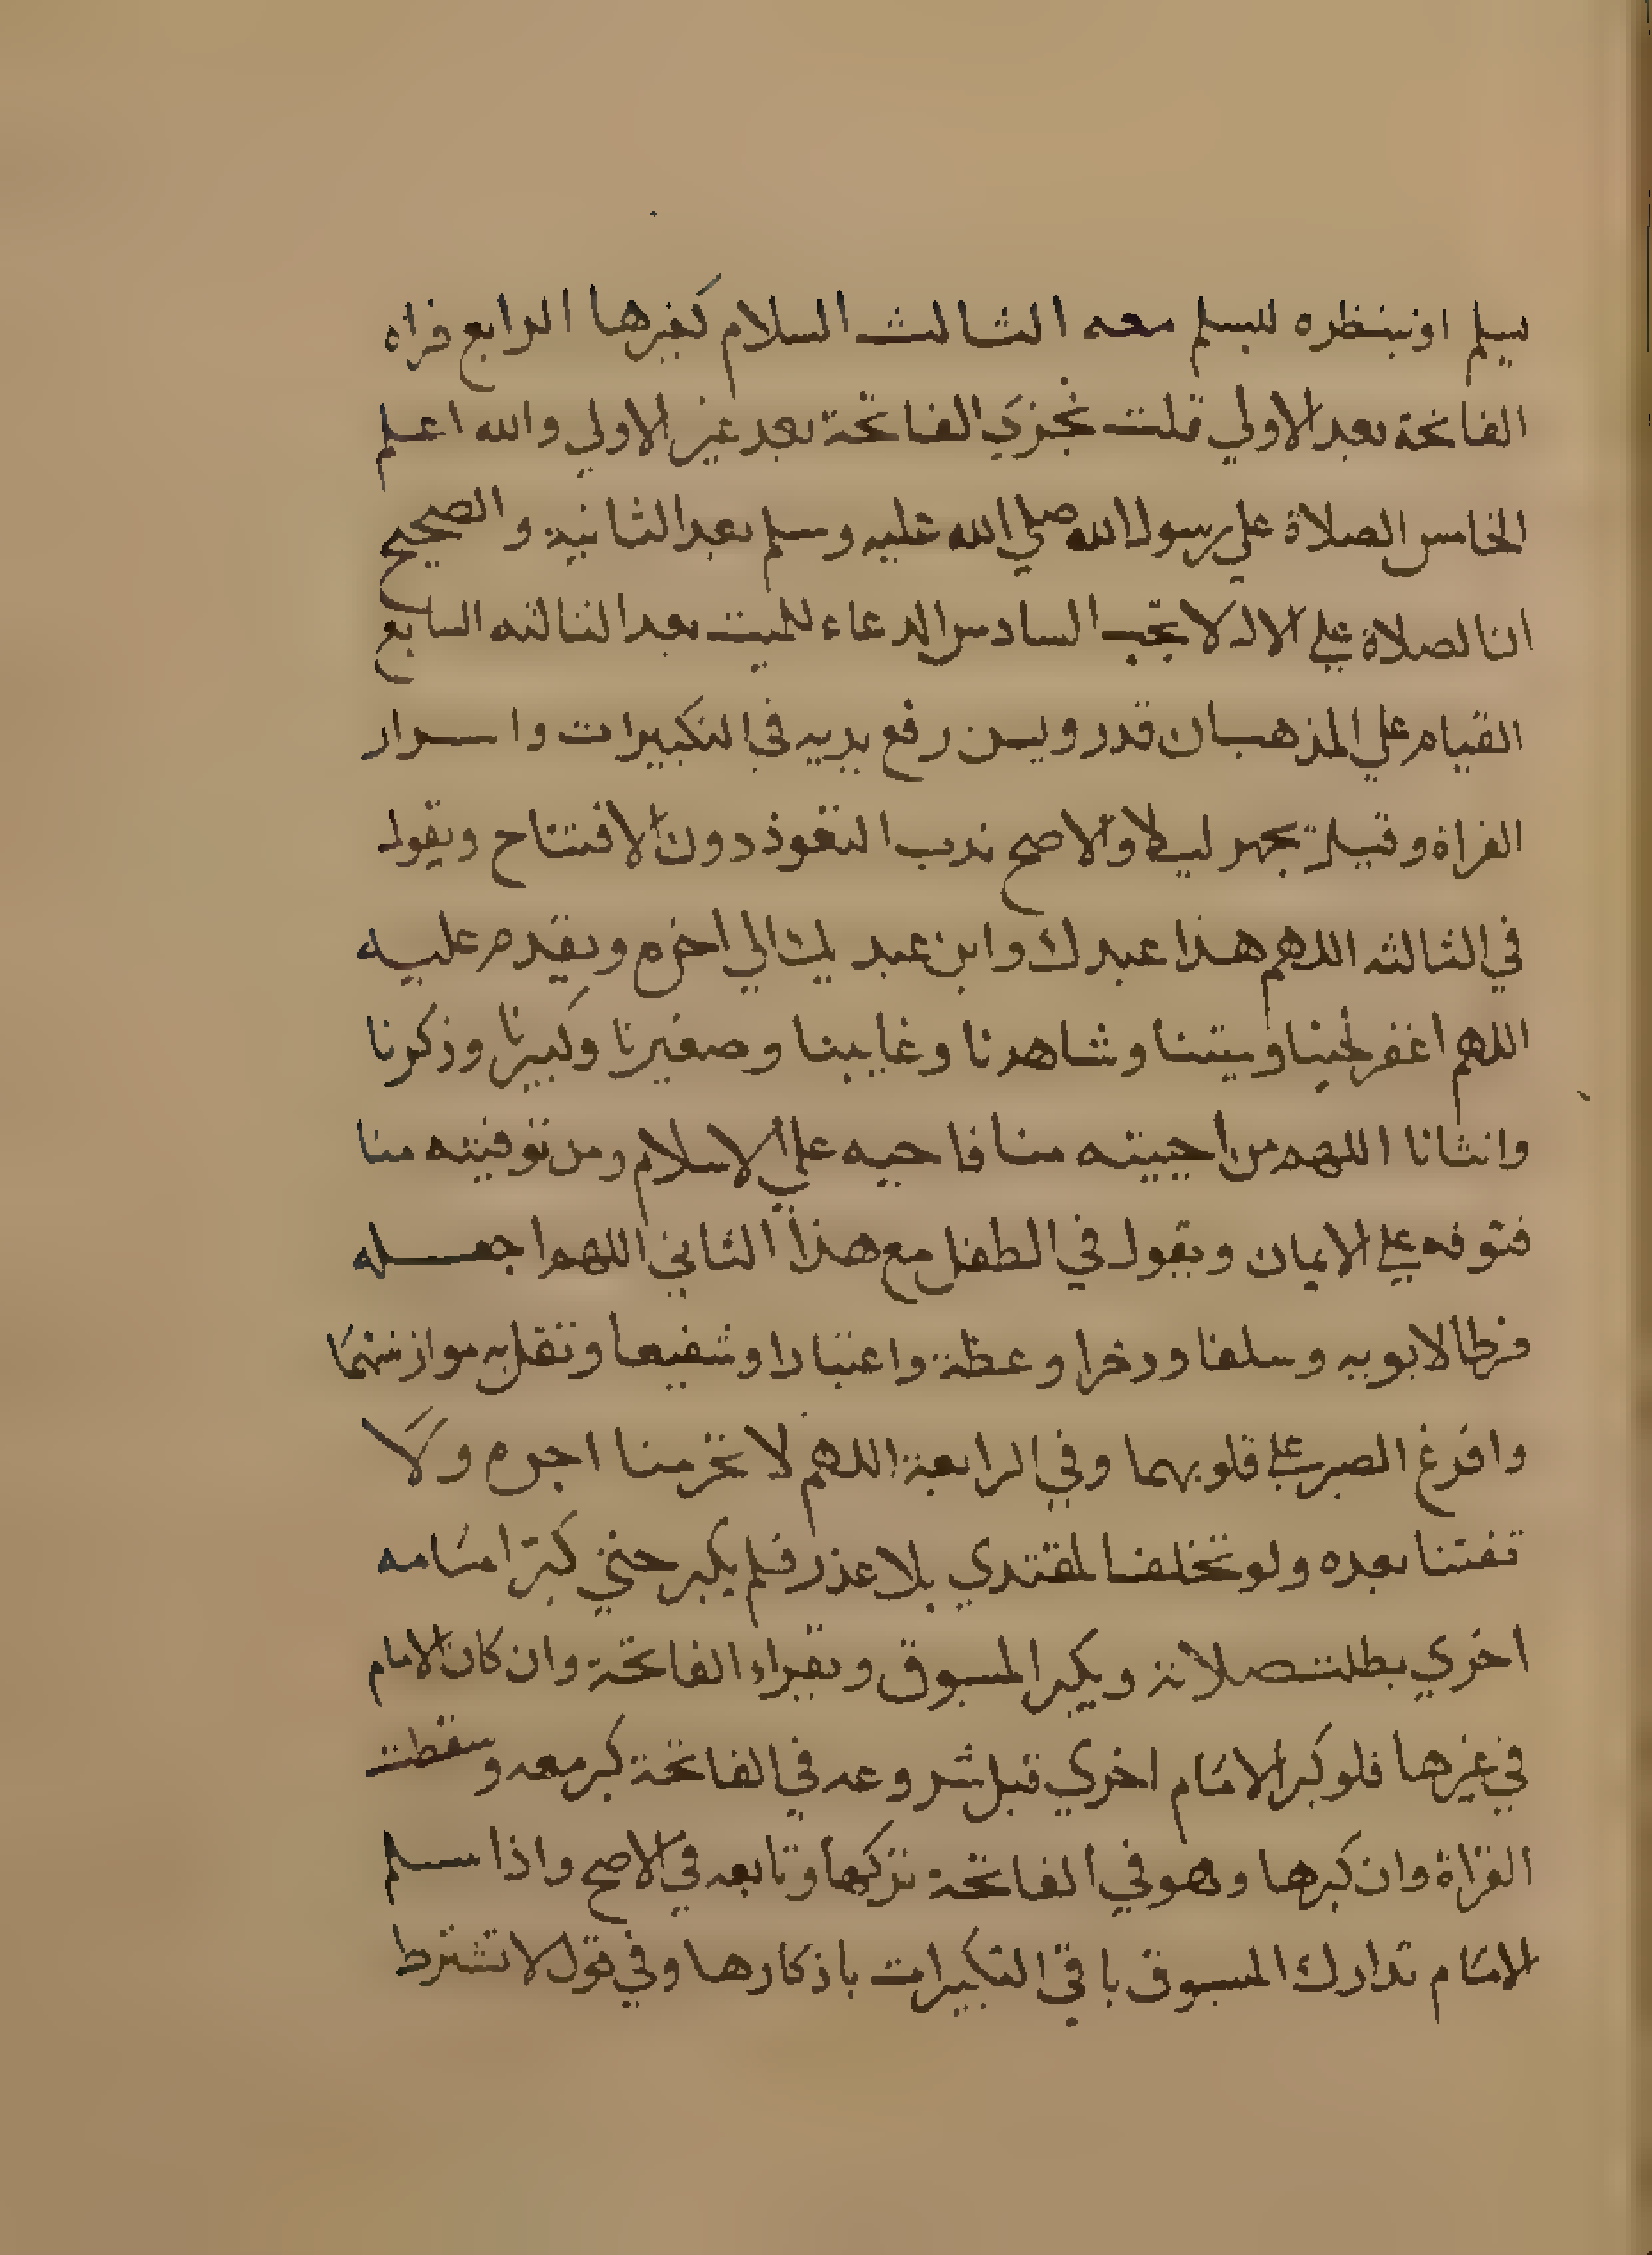 يسلم او ينتظره ليسلم معه الثالث السلام كغيرها الرابع قراه
الفاتحة بعد الاولي قلت تجزي الفاتحة بعد غير الاولي والله اعلم
الخامس الصلاة علي رسول الله صلي الله عليه وسلم بعد الثانية والصحيح
ان الصلاة علي الال لا تجب السادس الدعاء للميت بعد الثالثه السابع
القيام علي المذهب ان قدر ويسن رفع يديه في التكبيرات واسرار
القراة وقيل يجهر ليلا والاصح ندب التعوذ دون الافتتاح ويقول
في الثالثه اللهم هذا عبدك وابن عبديك الي اخره ويقدم عليه
اللهم اغفر لحينا وميتنا وشاهدنا وغايبنا وصغيرنا وكبيرنا وذكرنا
وانثانا اللهم من احييته منا فاحيه علي الاسلام ومن توفيته منا
فتوفه علي الايمان ويقول في الطفل مع هذا الثاني اللهم اجعله
فرطا لابويه وسلفا وذخرا وعظة واعتبارا وشفيعا وثقل به موازينهما
وافرغ الصبر علي قلوبهما وفي الرابعة اللهم لا تحرمنا اجره ولا
تفتنا بعده ولو تخلف المقتدي بلا عذر فلم يكبر حتي كبر امامه
اخري بطلت صلاته ويكبر المسبوق ويقراء الفاتحة وان كان الامام
في غيرها فلو كبر الامام اخري قبل شروعه في الفاتحة كبر معه وسقطت
القراة وان كبرها وهو في الفاتحة تركها وتابعه في الاصح واذا سلم
الامام تدارك المسبوق باقي التكبيرات باذكارها وفي قول لا تشترط